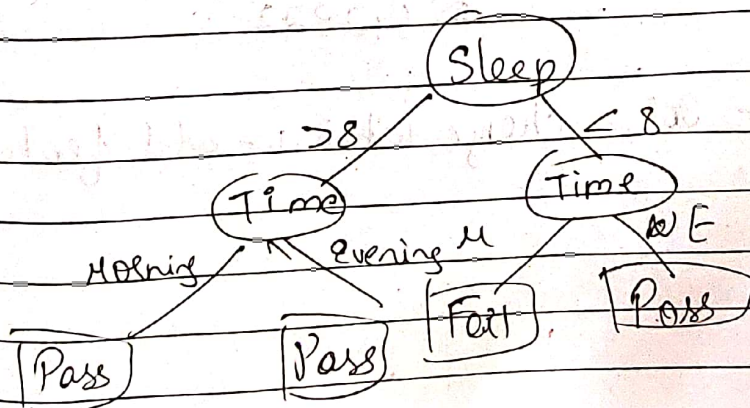 Sleep
>8
< 8
Time
Time
Morning
Evening M
E
Fail
Pass
Pass
Pass